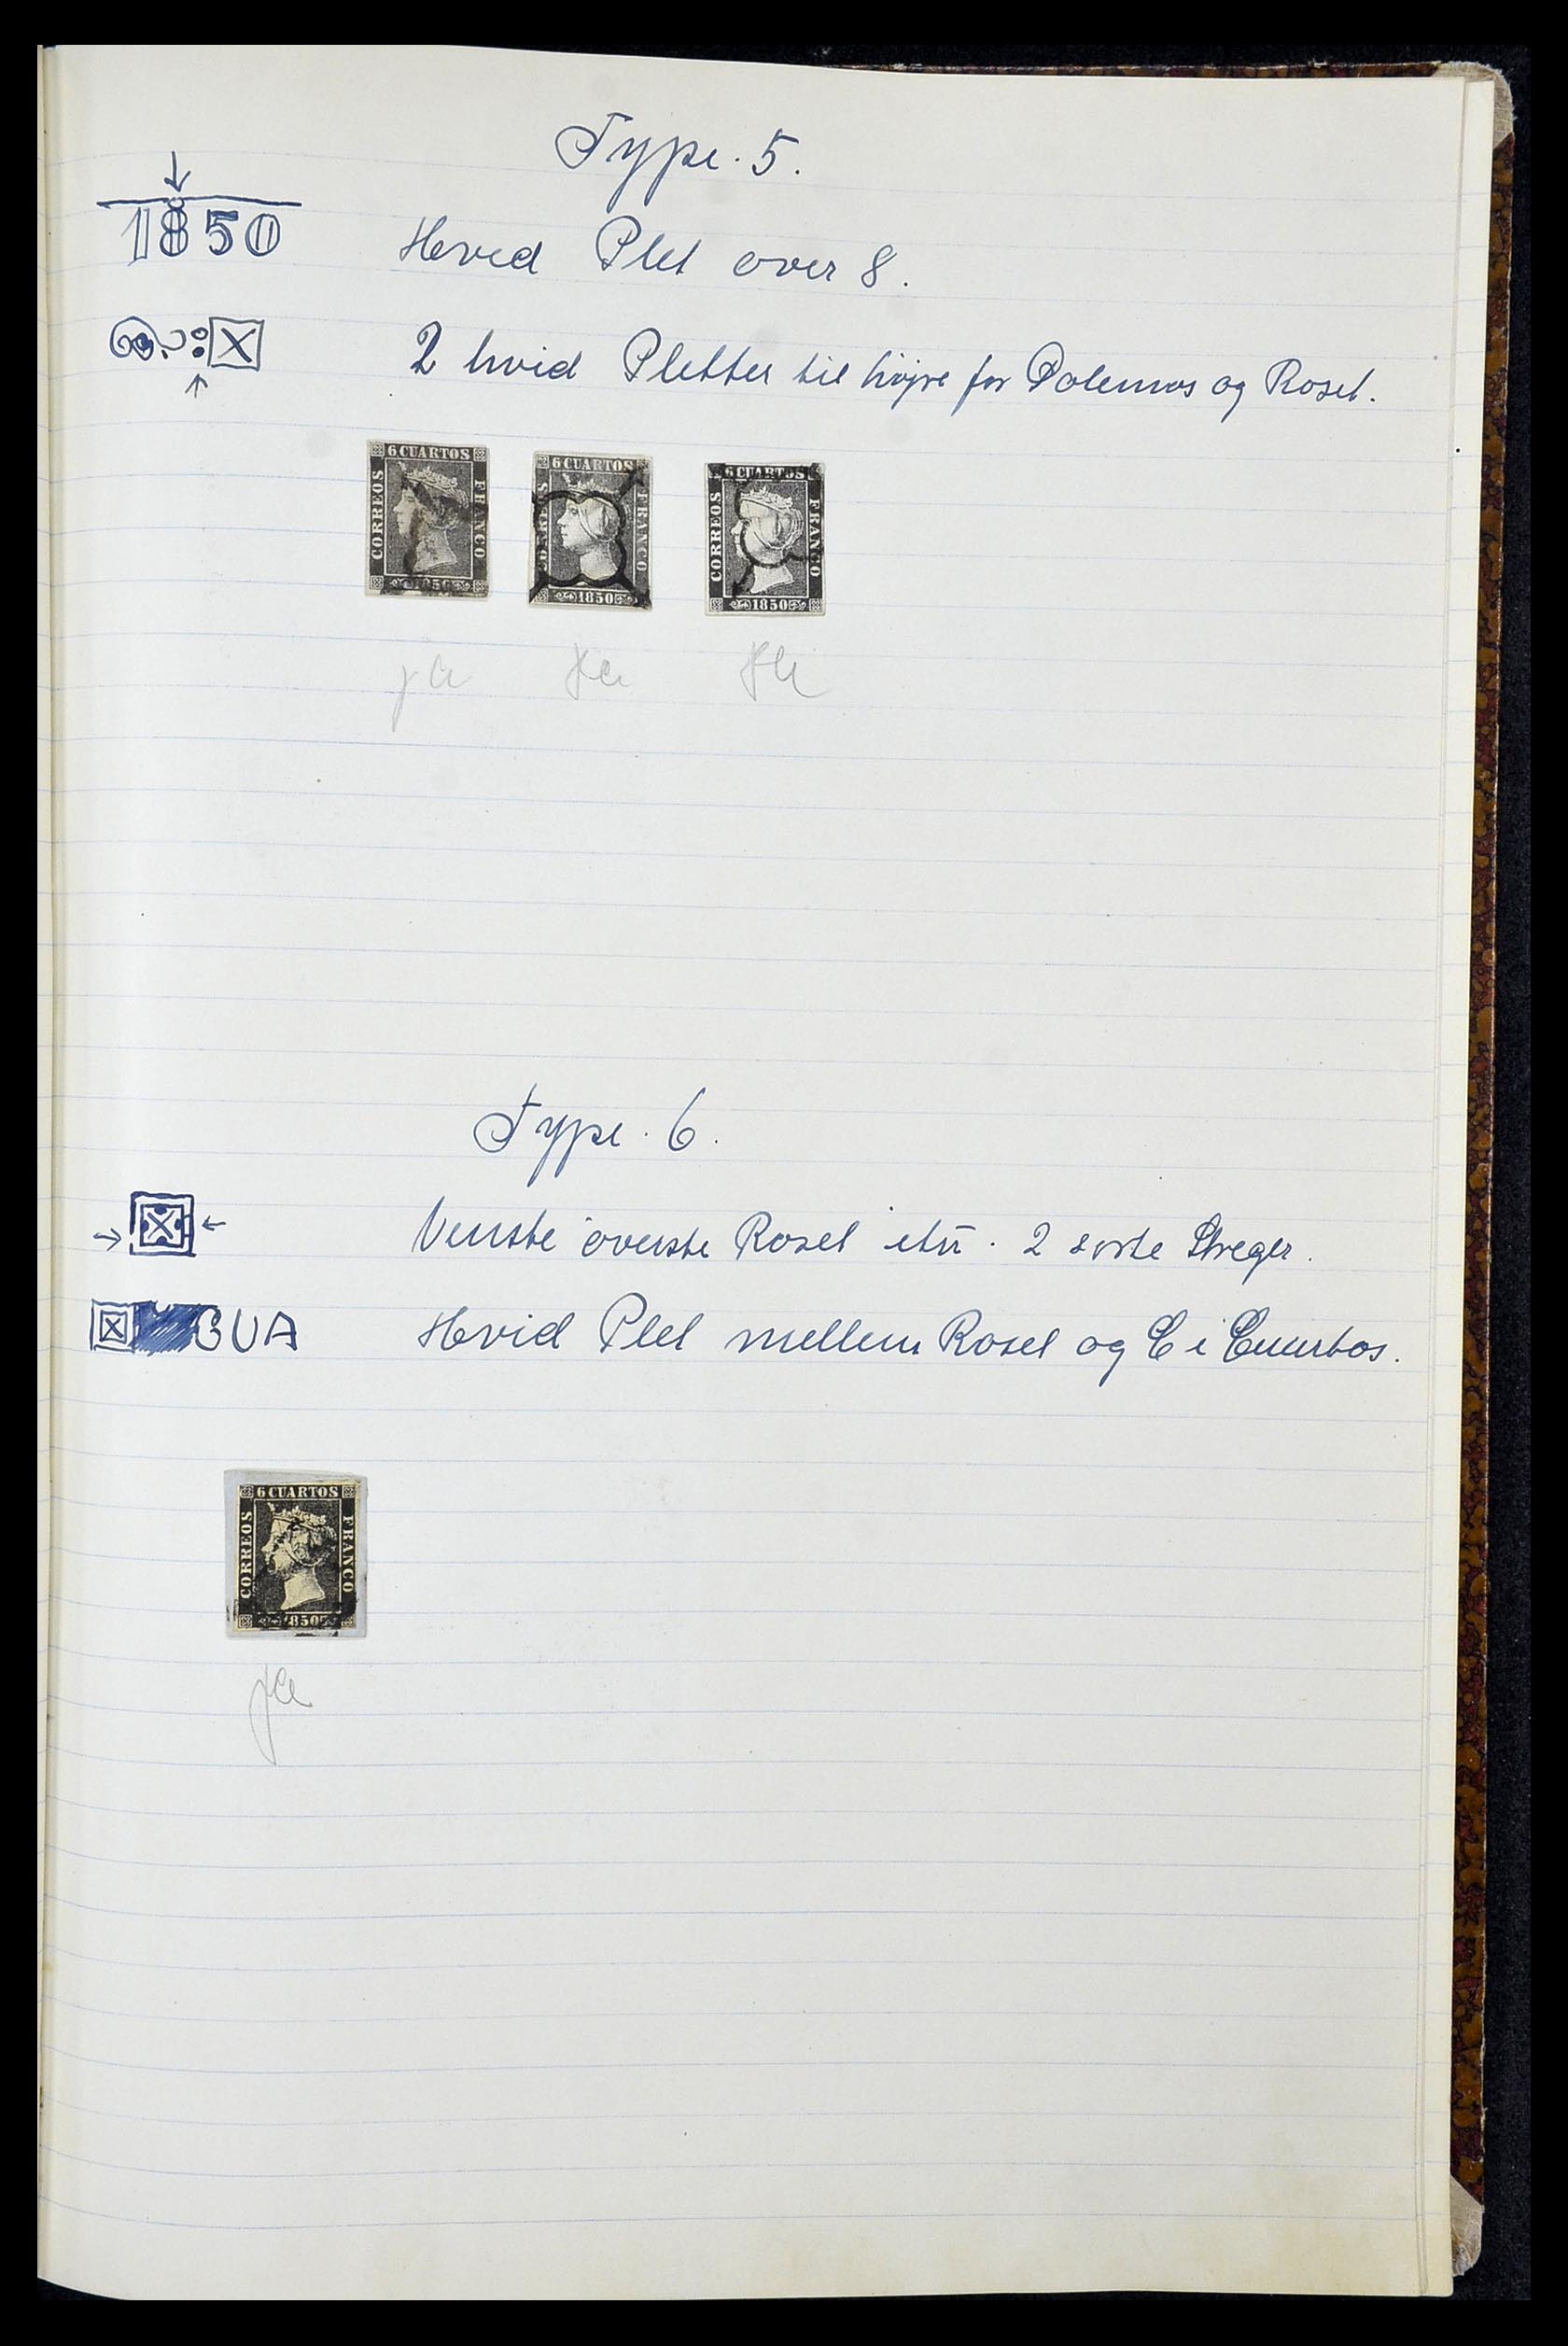 Type. 5.
1850
Hvid Plet over 8.
X
2 hvid Pletter til højre for og Roset.
6 CUARTOS
CORREOS
FRANCO
6 CUARTOS
FRANCO
1850
6 CUARTOS
CORREOS
FRANCO
1850
Type. 6.
X
Venste øverste Roset itu. 2 sorte Streger.
X CUA
Hvid Plet mellem Roset og C i Cuartos.
6 CUARTOS
CORREOS
FRANCO
1850